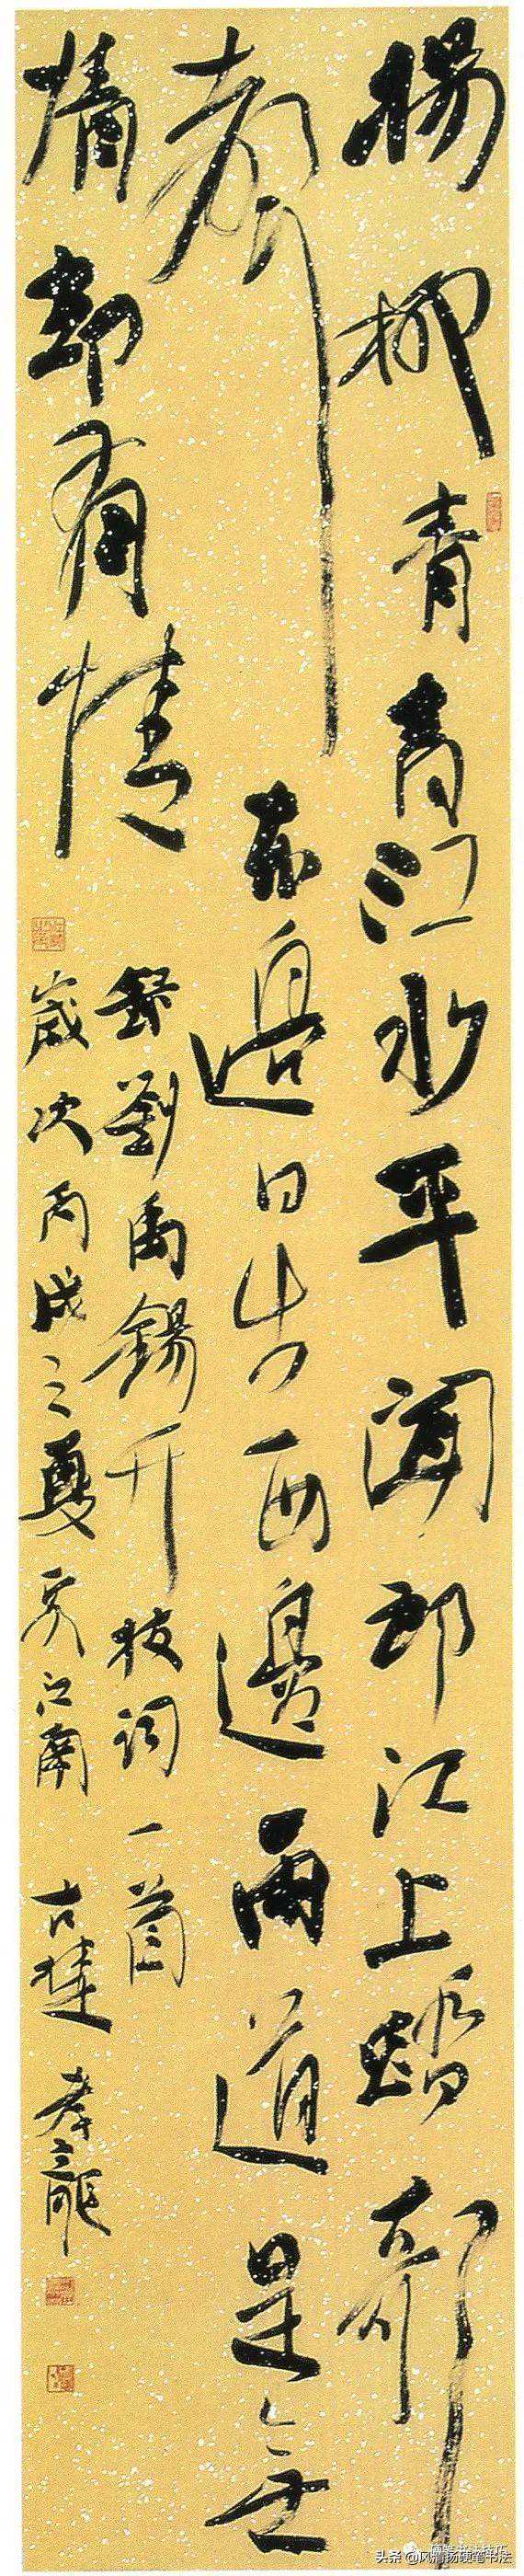 楊柳青青江水平聞郎江上踏歌
聲東邊日出西邊雨道是無
情却有情
錄劉禹錫竹枝詞一首
歲次丙戌之夏 江南
头条 @风清扬硬笔书法